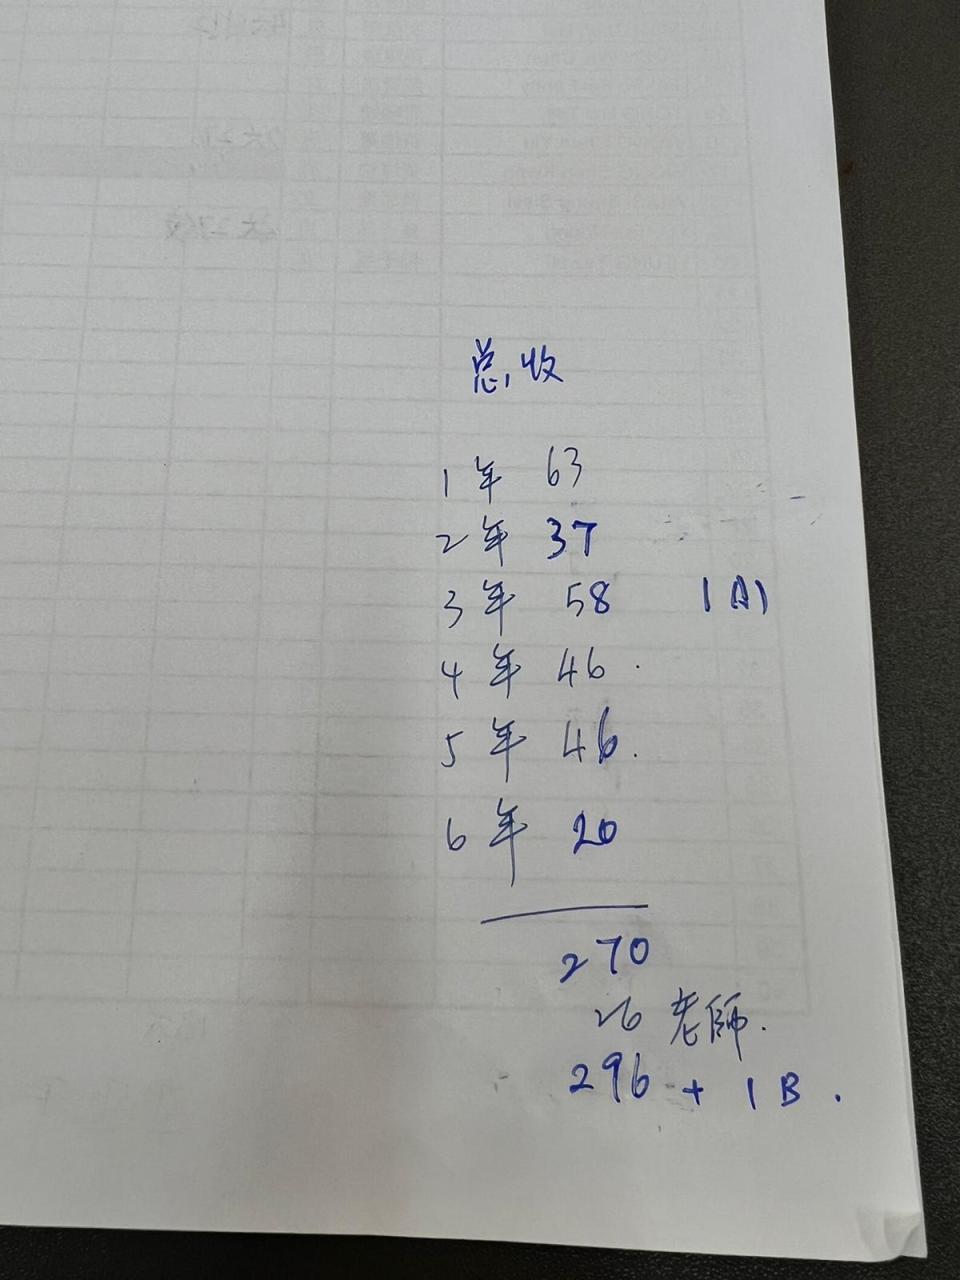 总收
1年 63
2年 37
3年 58
4年 46.
5年 46.
6年 20
270
26 老師.
296 + 1B.